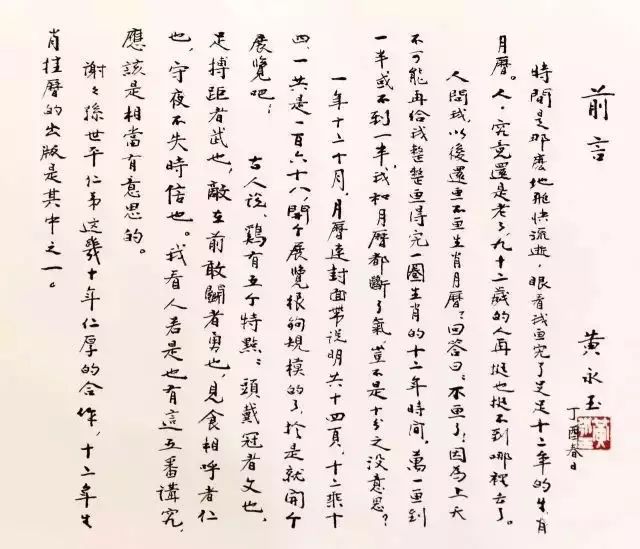 前言
黃永玉
丁酉春日
時間是那麼地飛快流逝,眼看我画完了足足十二年的生肖
月曆。人,究竟還是老了,九十二歲的人再挺也挺不到哪裡去了。
人問我,以後還画不画生肖月曆?回答曰:不画了!因為上天
不可能再給我整整画得完一圈生肖的十二年時間。萬一画到
一半或不到一半,我和月曆都斷了氣,豈不是十分之沒意思?
一年十二个月,月曆連封面帶説明共十四頁,十二乘十
四,一共是一百六十八,開个展覽很夠規模的了,於是就開个
展覽吧! 古人説,鷄有五个特點:頭戴冠者文也,
足搏距者武也,敵在前敢鬭者勇也,見食相呼者仁
也,守夜不失時信也。我看人若是也有這五番講究,
應該是相當有意思的。
謝々孫世平仁弟這幾十年仁厚的合作,十二年生
肖挂曆的出版是其中之一。